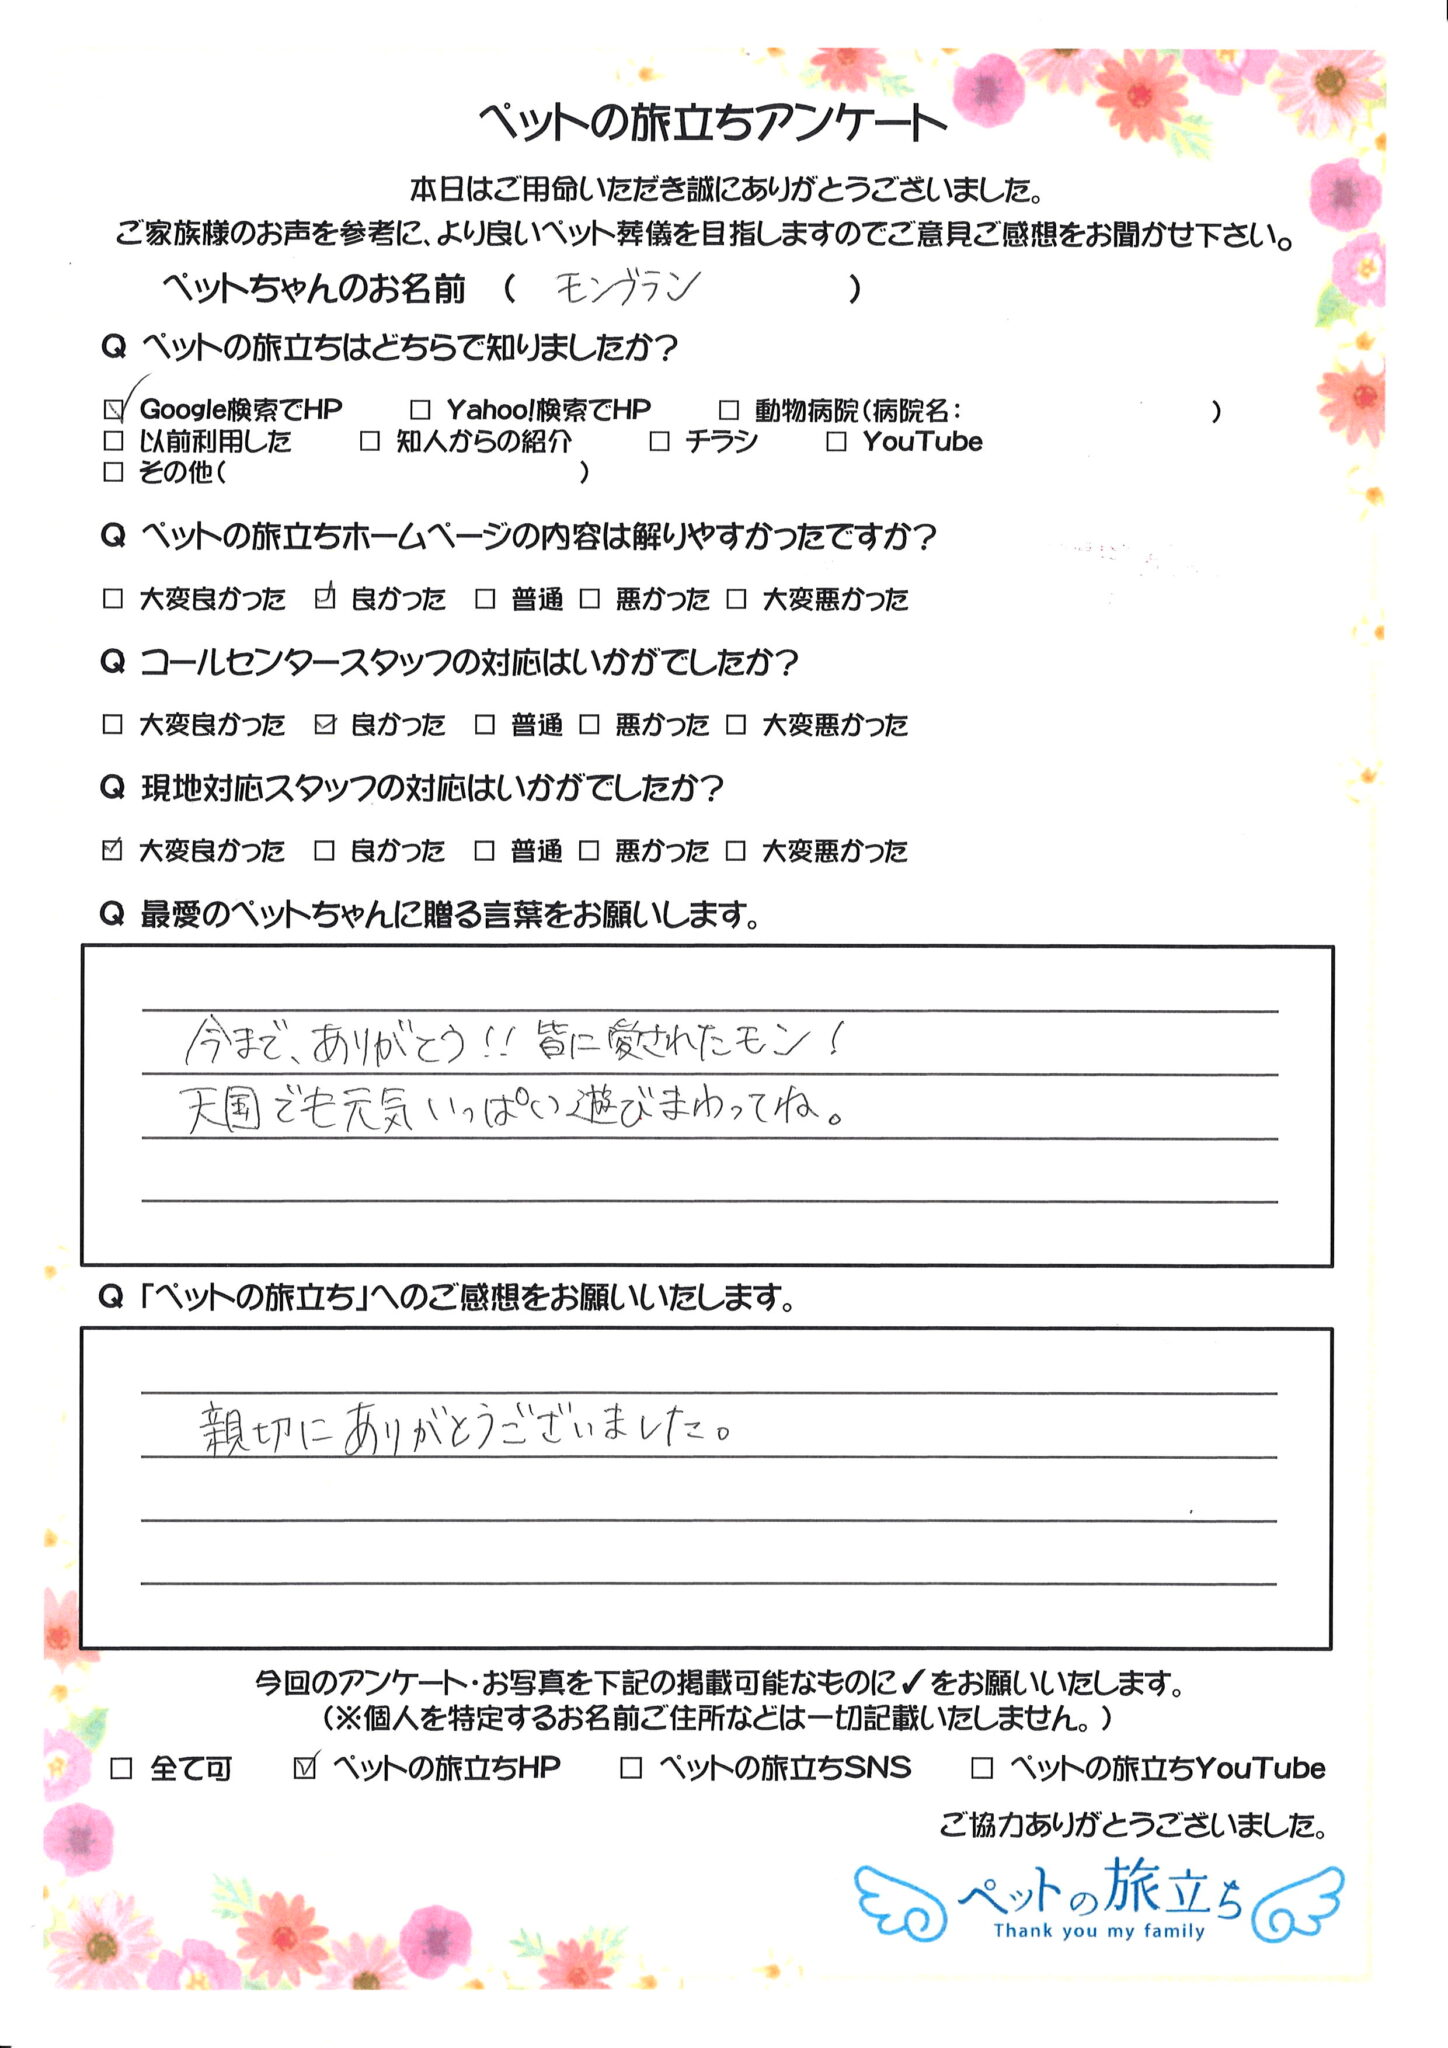 ペットの旅立ちアンケート
本日はご用命いただき誠にありがとうございました。
ご家族様のお声を参考に、より良いペット葬儀を目指しますのでご意見ご感想をお聞かせ下さい。
ペットちゃんのお名前 ( モンブラン )
Q ペットの旅立ちはどちらで知りましたか?
☑ Google検索でHP □ Yahoo!検索でHP □ 動物病院(病院名: )
□ 以前利用した □ 知人からの紹介 □ チラシ □ YouTube
□ その他( )
Q ペットの旅立ちホームページの内容は解りやすかったですか?
□ 大変良かった ☑ 良かった □ 普通 □ 悪かった □ 大変悪かった
Q コールセンタースタッフの対応はいかがでしたか?
□ 大変良かった ☑ 良かった □ 普通 □ 悪かった □ 大変悪かった
Q 現地対応スタッフの対応はいかがでしたか?
☑ 大変良かった □ 良かった □ 普通 □ 悪かった □ 大変悪かった
Q 最愛のペットちゃんに贈る言葉をお願いします。
今まで、ありがとう!! 皆に愛されたモン!
天国でも元気いっぱい遊びまわってね。
Q 「ペットの旅立ち」へのご感想をお願いいたします。
親切にありがとうございました。
今回のアンケート・お写真を下記の掲載可能なものに✓をお願いいたします。
(※個人を特定するお名前ご住所などは一切記載いたしません。)
□ 全て可 ☑ ペットの旅立ちHP □ ペットの旅立ちSNS □ ペットの旅立ちYouTube
ご協力ありがとうございました。
ペットの旅立ち
Thank you my family